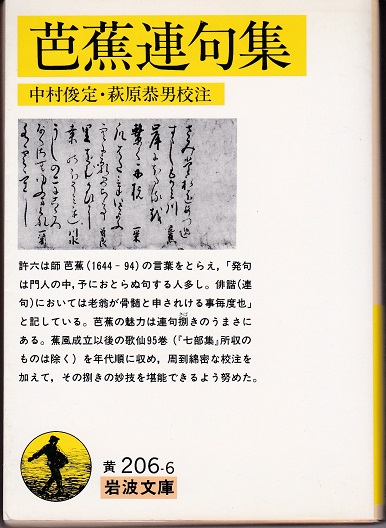 芭蕉連句集
中村俊定・萩原恭男校注
許六は師 芭蕉(1644‐94)の言葉をとらえ，「発句
は門人の中，予におとらぬ句する人多し。俳諧(連
句)においては老翁が骨髄と申されける事毎度也」
と記している。芭蕉の魅力は連句捌きのうまさに
ある。蕉風成立以後の歌仙95巻(『七部集』所収の
ものは除く)を年代順に収め，周到綿密な校注を
加えて，その捌きの妙技を堪能できるよう努めた。
黄 206-6
岩波文庫